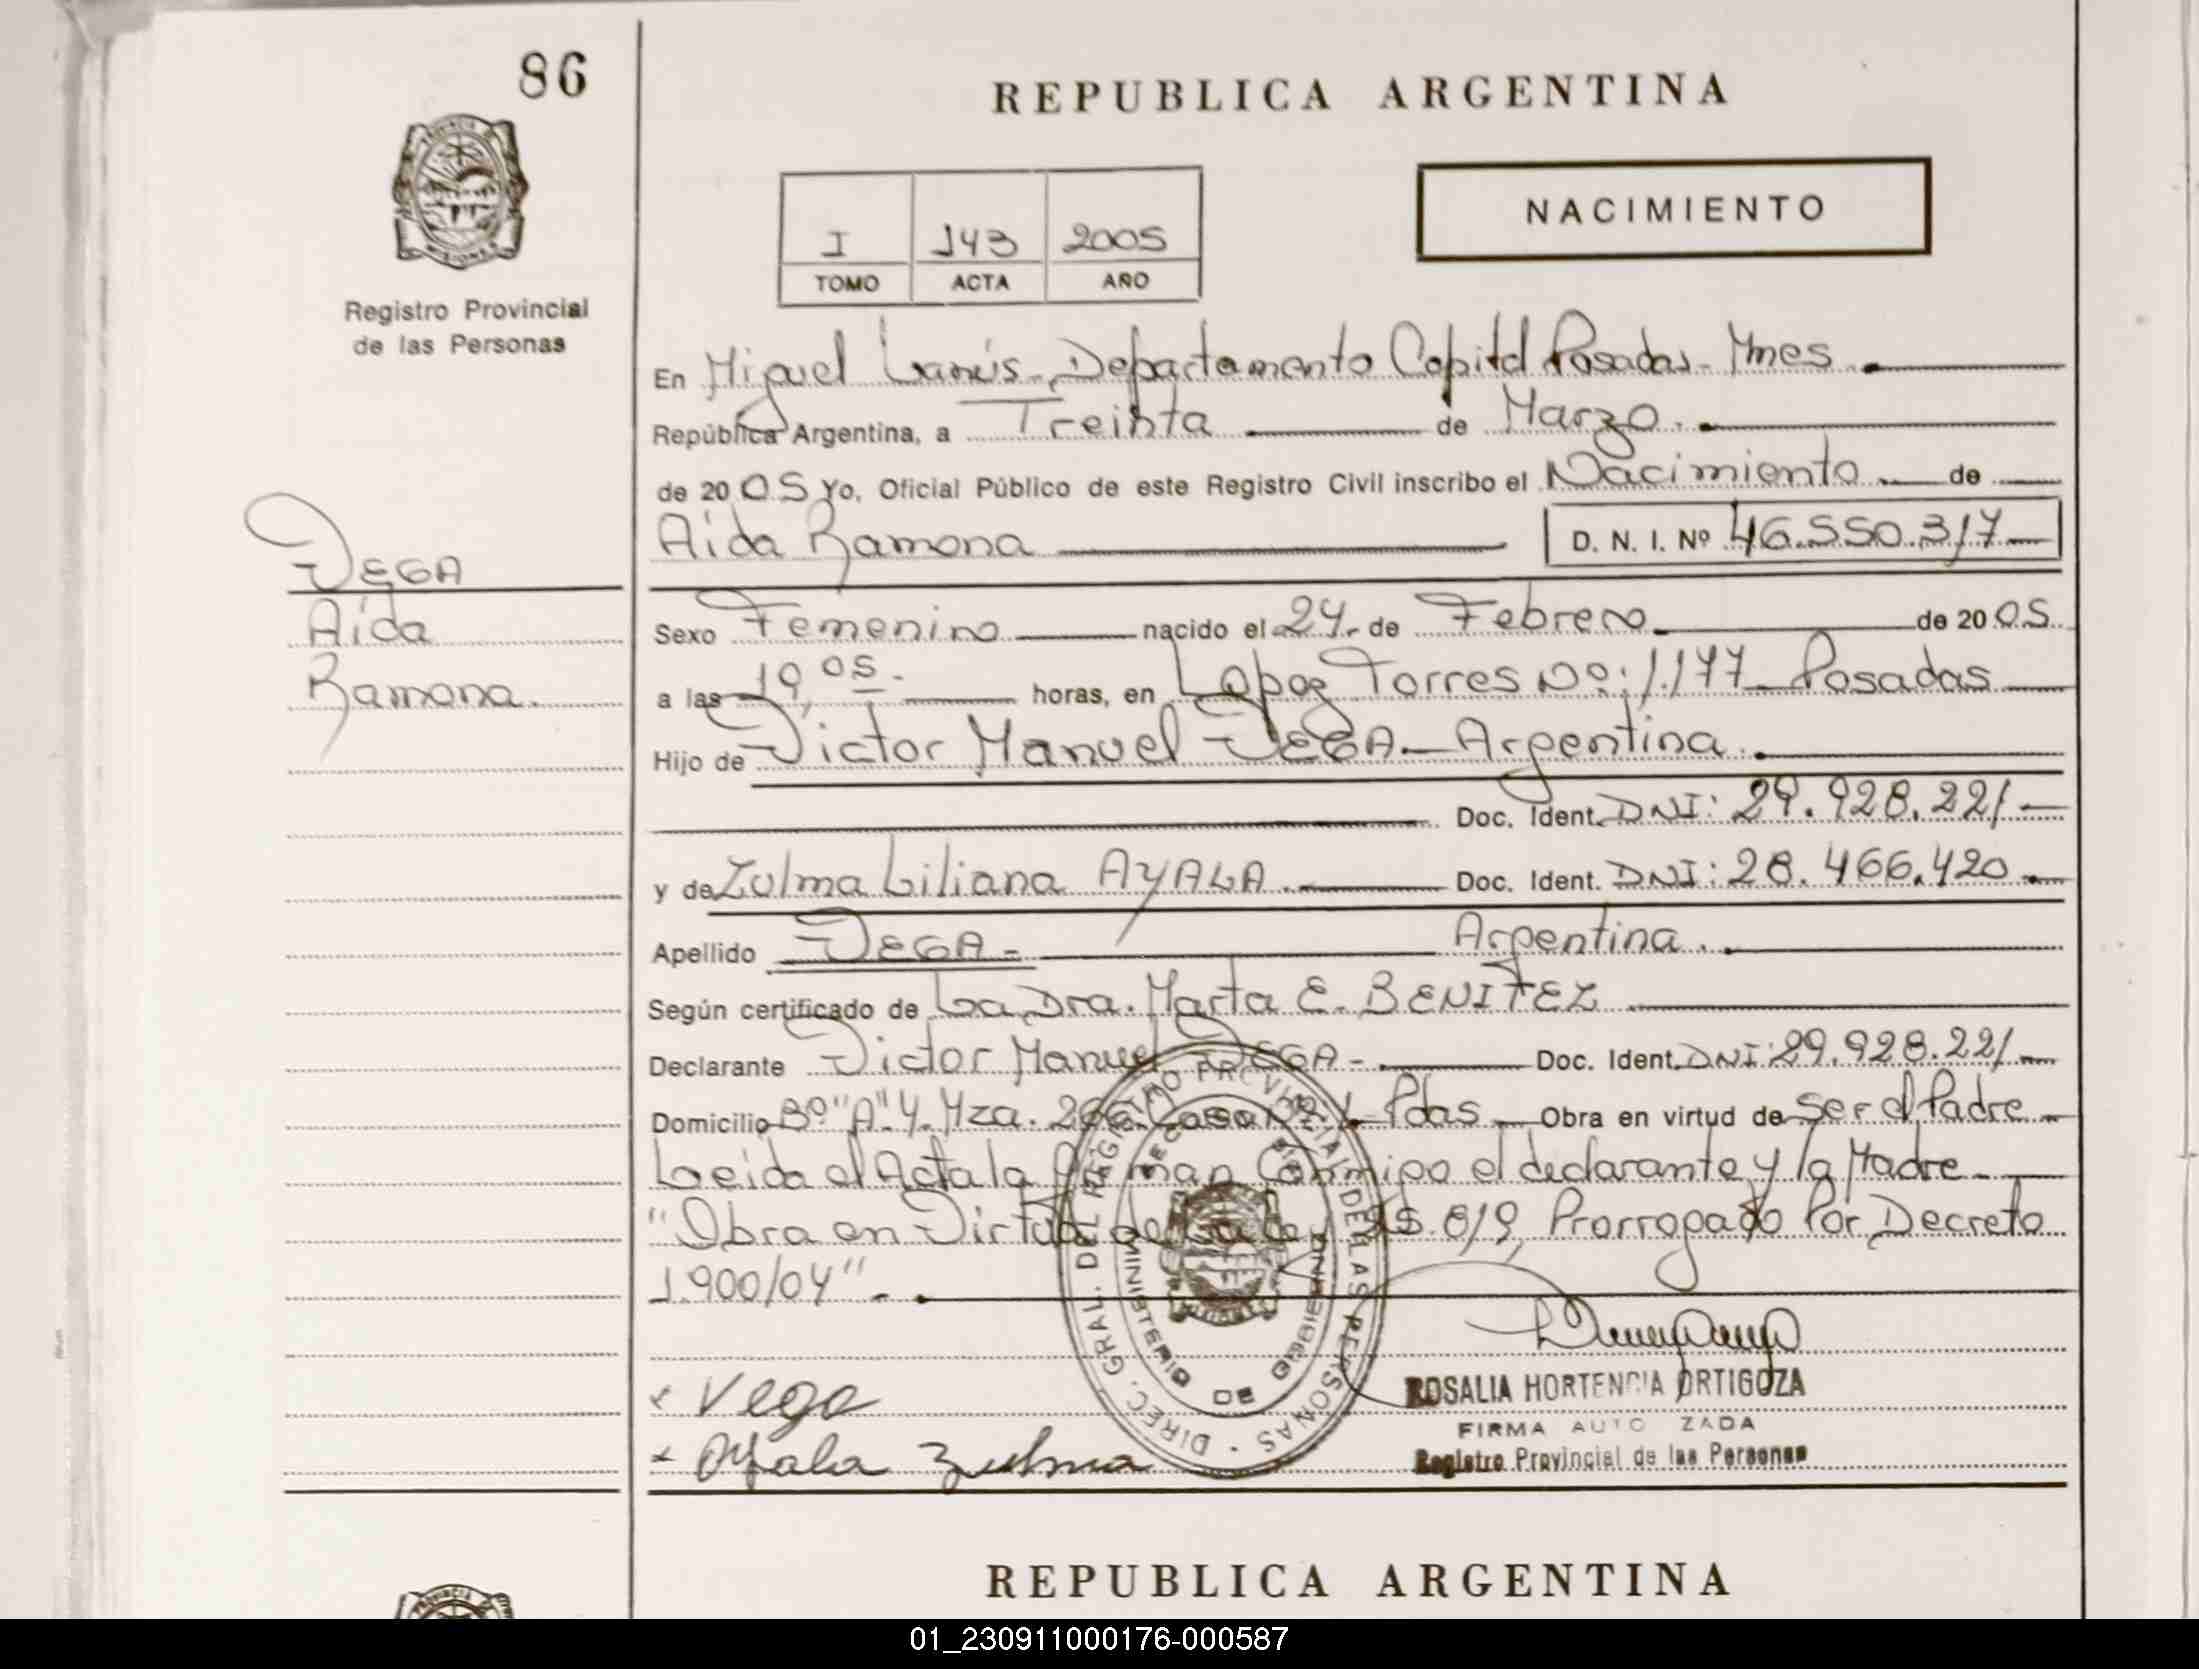 86
REPUBLICA ARGENTINA
Registro Provincial
de las Personas
NACIMIENTO
I 143 2005
TOMO ACTA AÑO
En Miguel Lanús - Departamento Capital Posadas - Mnes
República Argentina, a Treinta de Marzo
de 2005 Yo, Oficial Público de este Registro Civil inscribo el Nacimiento de
Aída Ramona D. N. I. Nº 46.550.317
VEGA
Aída
Ramona
Sexo Femenino nacido el 24 de Febrero de 2005
a las 19,05 horas, en Lopez Torres Nº: 1.177 - Posadas
Hijo de Victor Manuel VEGA - Argentina
Doc. Ident. DNI: 29.928.221
y de Zulma Liliana AYALA Doc. Ident. DNI: 28.466.420
Apellido VEGA Argentina
Según certificado de La Dra. Marta E. BENITEZ
Declarante Victor Manuel VEGA Doc. Ident. DNI: 29.928.221
Domicilio Bº "A" 4 Mza. Casa Pdas Obra en virtud de ser el Padre
Leida el Acta la firman Conmigo el declarante y la Madre
"Obra en Virtud de la Ley 25.819, Prorrogado Por Decreto
1.900/04"
DIREC. GRAL. DEL REGISTRO PROVINCIAL DE LAS PERSONAS
MINISTERIO DE GOBIERNO
x Vega
x Ayala Zulma
ROSALIA HORTENCIA ORTIGOZA
FIRMA AUTORIZADA
Registro Provincial de las Personas
REPUBLICA ARGENTINA
01_230911000176-000587